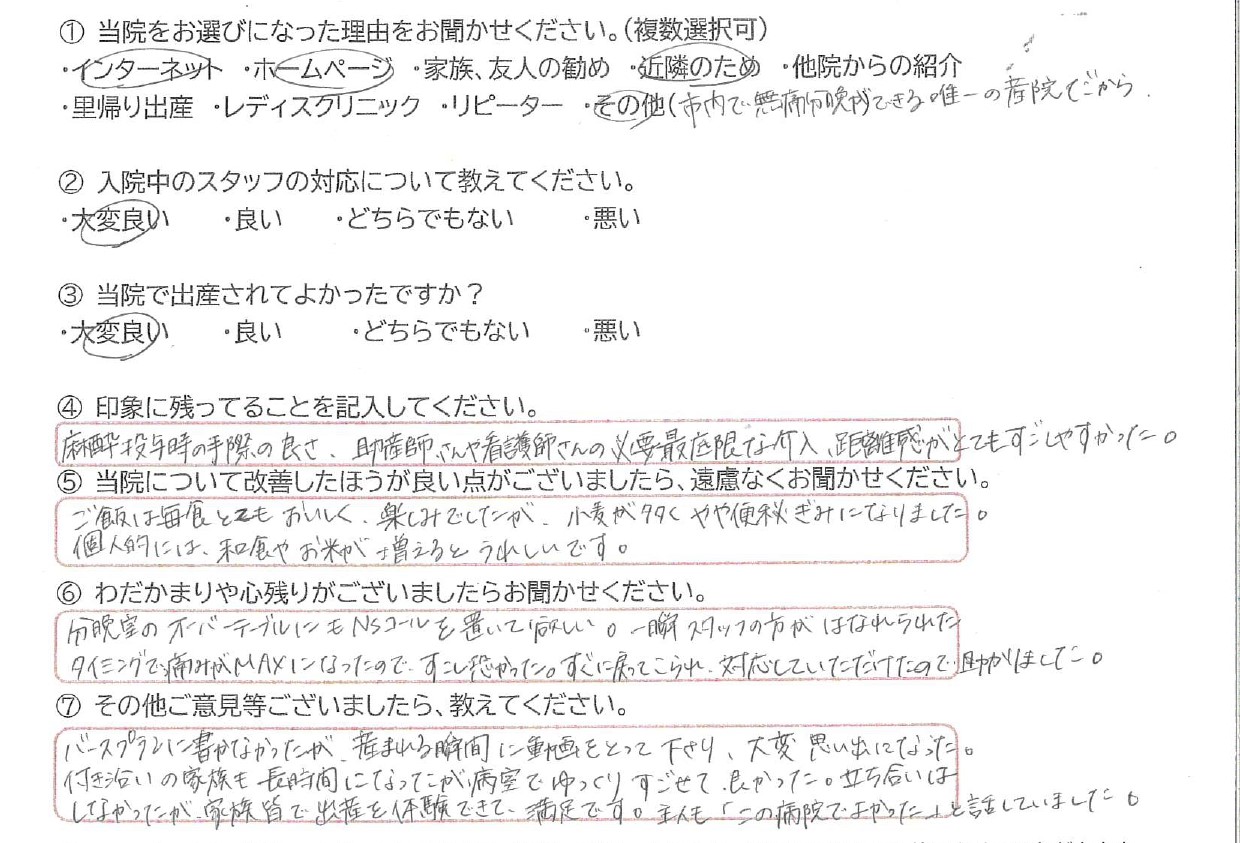 ① 当院をお選びになった理由をお聞かせください。(複数選択可)
・インターネット ・ホームページ ・家族、友人の勧め ・近隣のため ・他院からの紹介
・里帰り出産 ・レディスクリニック ・リピーター ・その他(市内で無痛分娩ができる唯一の産院だから
② 入院中のスタッフの対応について教えてください。
・大変良い ・良い ・どちらでもない ・悪い
③ 当院で出産されてよかったですか?
・大変良い ・良い ・どちらでもない ・悪い
④ 印象に残ってることを記入してください。
麻酔投与時の手際の良さ、助産師さんや看護師さんの必要最底限な介入、距離感がとてもすごしやすかった。
⑤ 当院について改善したほうが良い点がございましたら、遠慮なくお聞かせください。
ご飯は毎食とてもおいしく、楽しみでしたが、小麦が多くやや便秘ぎみになりました。
個人的には、和食やお米が増えるとうれしいです。
⑥ わだかまりや心残りがございましたらお聞かせください。
分晩室のオーバーテーブルにもNSコールを置いて欲しい。一瞬スタッフの方がはなれられた
タイミングで痛みがMAXになったので、すこし恐かった。すぐに戻ってこられ、対応していただけたので助かりました。
⑦ その他ご意見等ございましたら、教えてください。
バースプランに書かなかったが、産まれる瞬間に動画をとって下さり、大変思い出になった。
付き沿いの家族も長時間になったが病室でゆっくりすごせて良かった。立ち合いは
しなかったが、家族皆で出産を体験できて、満足です。主人も「この病院でよかった」と話していました。